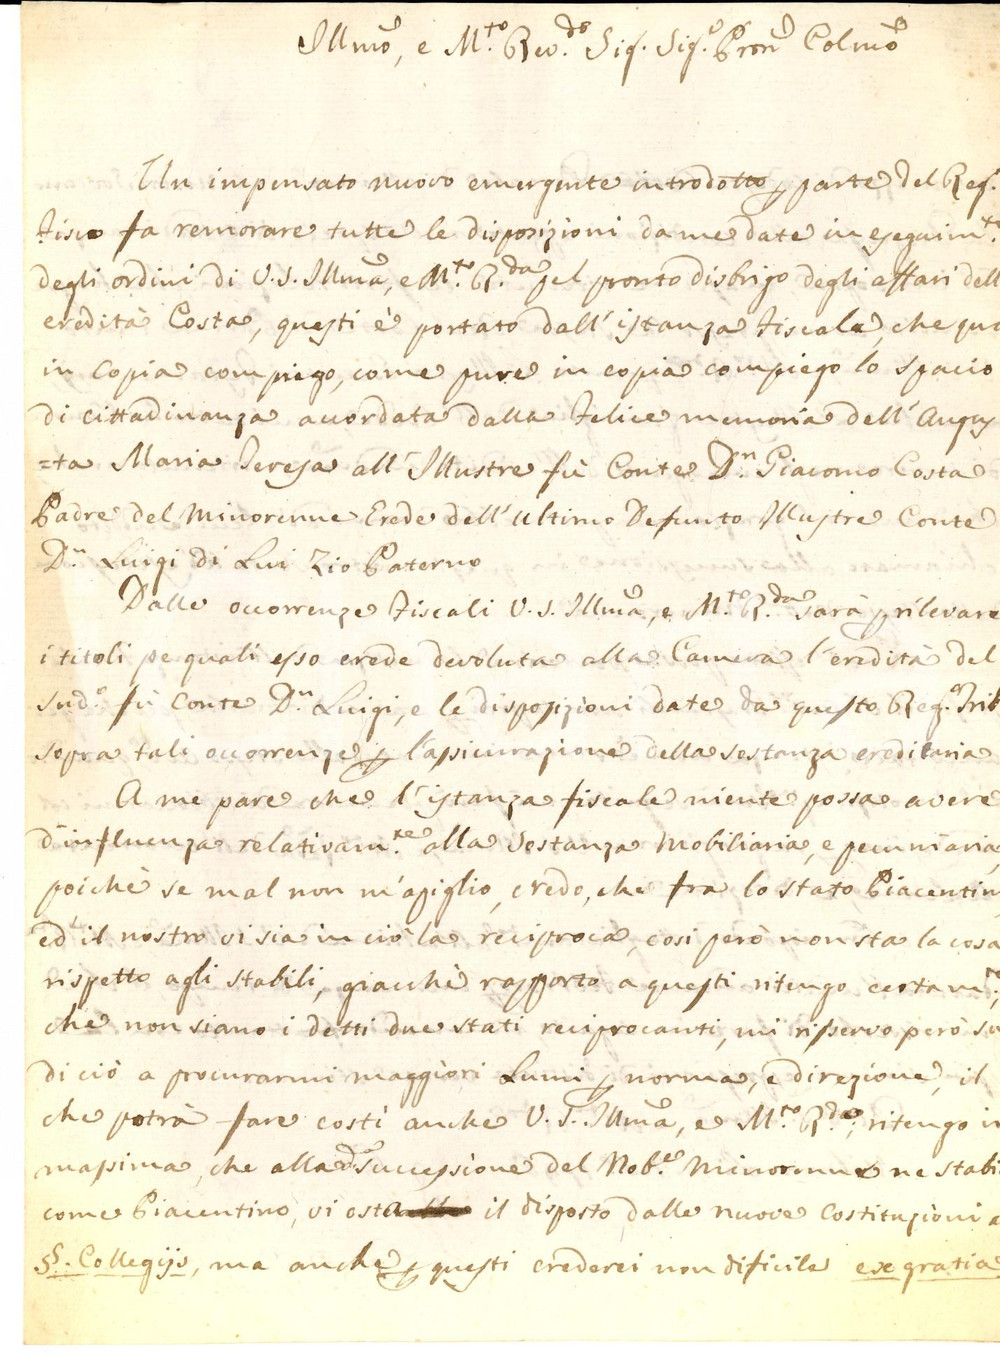 Illmo, e M.to Rev.do Sig. Sig.e Pron Colmo
Un impensato nuovo emergente introdotto p parte del Reg.
Fisco fa remorare tutte le disposizioni da me date in eseguim.to
degli ordini di V. S. Illma, e M.to R.da pel pronto disbrigo degli affari dell
eredità Costa, questi è portato dall'istanza Fiscale, che qua
in Copia compiego, come pure in copia compiego lo spacio
di cittadinanza accordata dalla Felice memoria dell'Augus
=ta Maria Teresa all'Illustre fù Conte D.n Giacomo Costa
Padre del Minorenne Erede dell'ultimo Defunto Illustre Conte
D.n Luigi di Lui Zio Paterno
Dalle occorrenze Fiscali V. S. Illma, e M.to R.da sarà p rilevare
i titoli pe quali esso crede devoluta alla Camera l'eredità del
sud.o fù Conte D.n Luigi, e le disposizioni date da questo Reg.o Trib
sopra tali occorrenze p l'assicurazione della sostanza ereditaria
A me pare che l'istanza fiscale niente possa avere
d'influenza relativam.te alla Sostanza Mobiliaria, e pecuniaria,
poichè se mal non m'apiglio, credo, che fra lo stato Piacentin
ed il nostro vi sia in ciò la reciproca, cosi però non sta la cosa
rispetto agli stabili, giacchè rapporto a questi ritengo certam.te
che non siano i detti due stati reciprocanti, mi risservo però su
di ciò a procurarmi maggiori Lumi p norma, e direzione, il
che potrà fare costì anche V. S. Illma, e M.to R.da, ritengo in
massima, che alla successione del Nob.e Minorenne ne stabi
come Piacentino, vi osta il disposto dalle nuove Costituzioni a
§§. Collegijs, ma anche p questi crederei non dificile exe gratia